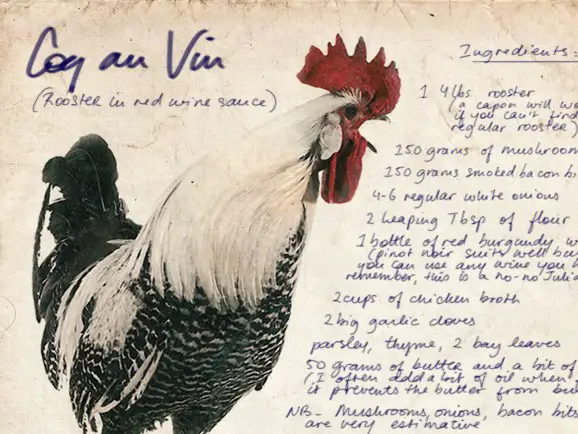 Coq au Vin
(Rooster in red wine sauce)
Ingredients:
1 4 lbs rooster
(a capon will w
if you can't find
regular rooster)
150 grams of mushroom
150 grams smoked bacon bi
4-6 regular white onions
2 heaping Tbsp of flour
1 bottle of red burgundy w
(pinot noir suits well bu
you can use any wine you
remember, this is a no-no Julia
2 cups of chicken broth
2 big garlic cloves
parsley, thyme, 2 bay leaves
50 grams of butter and a bit of
(I often add a bit of oil when
it prevents the butter from bu
NB- Mushrooms, onions, bacon bits
are very estimative